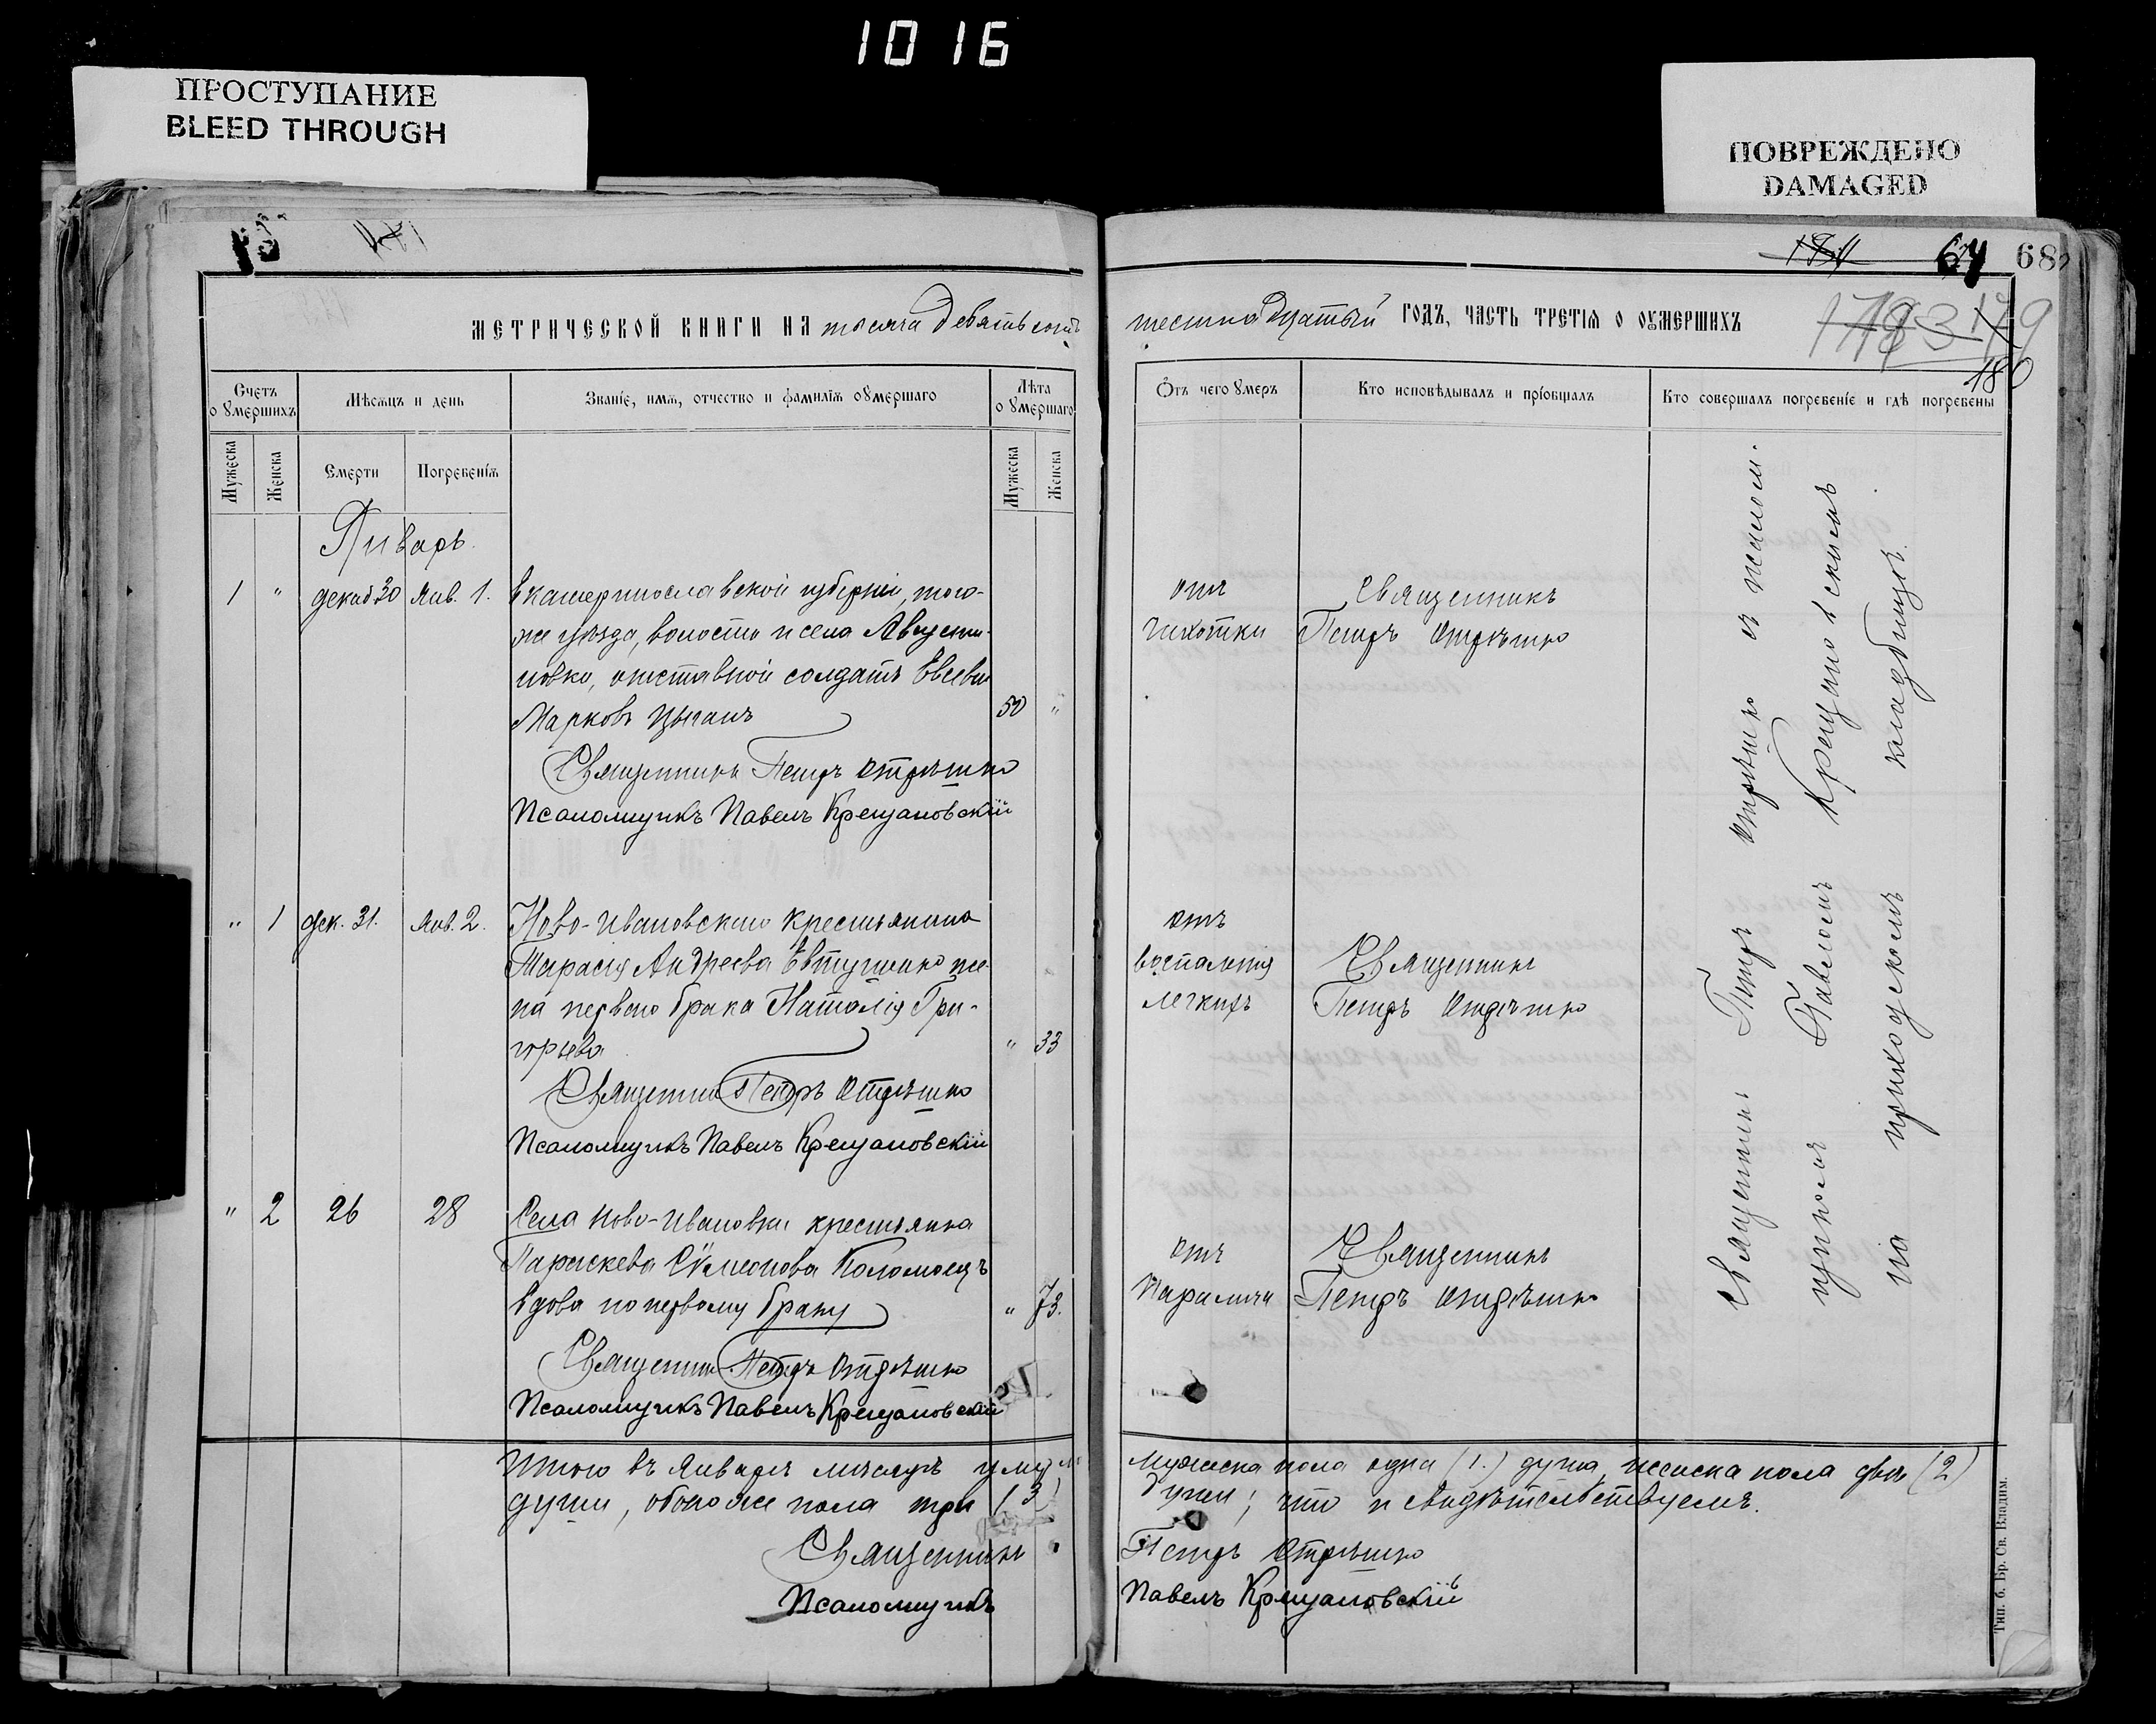 1016
ПРОСТУПАНИЕ
BLEED THROUGH
ПОВРЕЖДЕНО
DAMAGED
64 68
МЕТРИЧЕСКОЙ КНИГИ НА тысяча девятьсотъ
шестнадцатый ГОДЪ, ЧАСТЬ ТРЕТІѦ О ОУМЕРШИХЪ
180
Счетъ о умершихъ
Мѣсѧцъ и день
Званіе, имѧ, отчество и фамиліѧ оумершаго
Лѣта оумершаго
Мужеска
Женска
Смерти
Погребеніѧ
Мужеска
Женска
Январь.
1 " декаб 30 Янв. 1. Екатеринославской губерніи, того-
же уѣзда, волости и села Августи-
новки, отставной солдатъ Евсевій
Марковъ Цыганъ 50 "
Священникъ Петръ Отрѣшко
Псаломщикъ Павелъ Крещановскій
" 1 дек. 31. Янв. 2. Ново-Ивановскаго крестьянина
Тарасія Андреева Евтушенко же-
на первого брака Наталія Гри-
горьева " 33
Священникъ Петръ Отрѣшко
Псаломщикъ Павелъ Крещановскій
" 2 26 28 Села Ново-Ивановки крестьянка
Параскева Сѵмеонова Коломоецъ
вдова по первому браку " 73.
Священникъ Петръ Отрѣшко
Псаломщикъ Павелъ Крещановскій
Итого въ Январѣ мѣсяцѣ
души, обоего же пола три (3)
Священникъ
Псаломщикъ
Ѿтъ чего умеръ
Кто исповѣдывалъ и пріобщалъ
Кто совершалъ погребеніе и гдѣ погребены
отъ
чихотки
Священникъ
Петръ Отрѣшко
отъ
воспаленія
легкихъ
Священникъ
Петръ Отрѣшко
отъ
паралича
Священникъ
Петръ Отрѣшко
Священникъ Петръ Отрѣшко съ псалом-
щикомъ Павеломъ Крещановскимъ
на приходскомъ кладбищѣ.
мужеска пола одна (1.) душа, женска пола двѣ (2)
души; что и свидѣтельствуемъ.
Петръ Отрѣшко
Павелъ Крещановскій
Тип. б. Бр. Св. Владим.